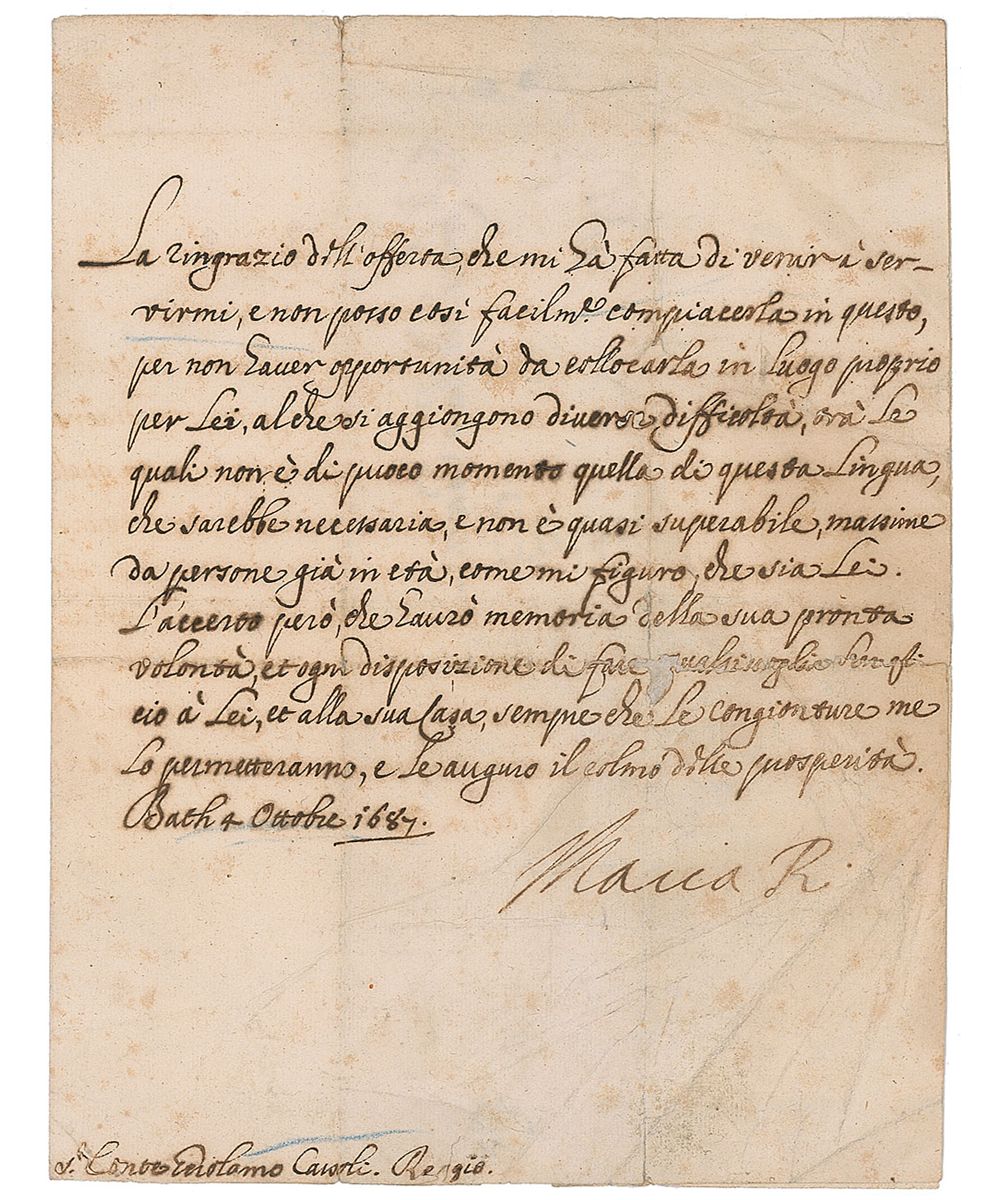 La ringrazio dell'offerta, che mi hà fatta di venir à ser-
virmi, e non posso così facilm.e compiacerla in questo,
per non haver opportunità da collocarla in luogo proprio
per Lei, al che si aggiongono diverse difficoltà, trà Le
quali non è di puoco momento quella di questa Lingua,
che sarebbe necessaria, e non è quasi superabile, massime
da persone già in età, come mi figuro, che sia Lei.
L'accerto però, che haurò memoria della sua pronta
volontà, et ogni disposizione di fare qualsivoglia
cio à Lei, et alla sua Casa, sempre che Le congionture me
Lo permetteranno, e Le auguro il colmo delle prosperità.
Bath 4 Ottobre 1687.
Maria R.
S.r Conte Girolamo Cassoli. Reggio.